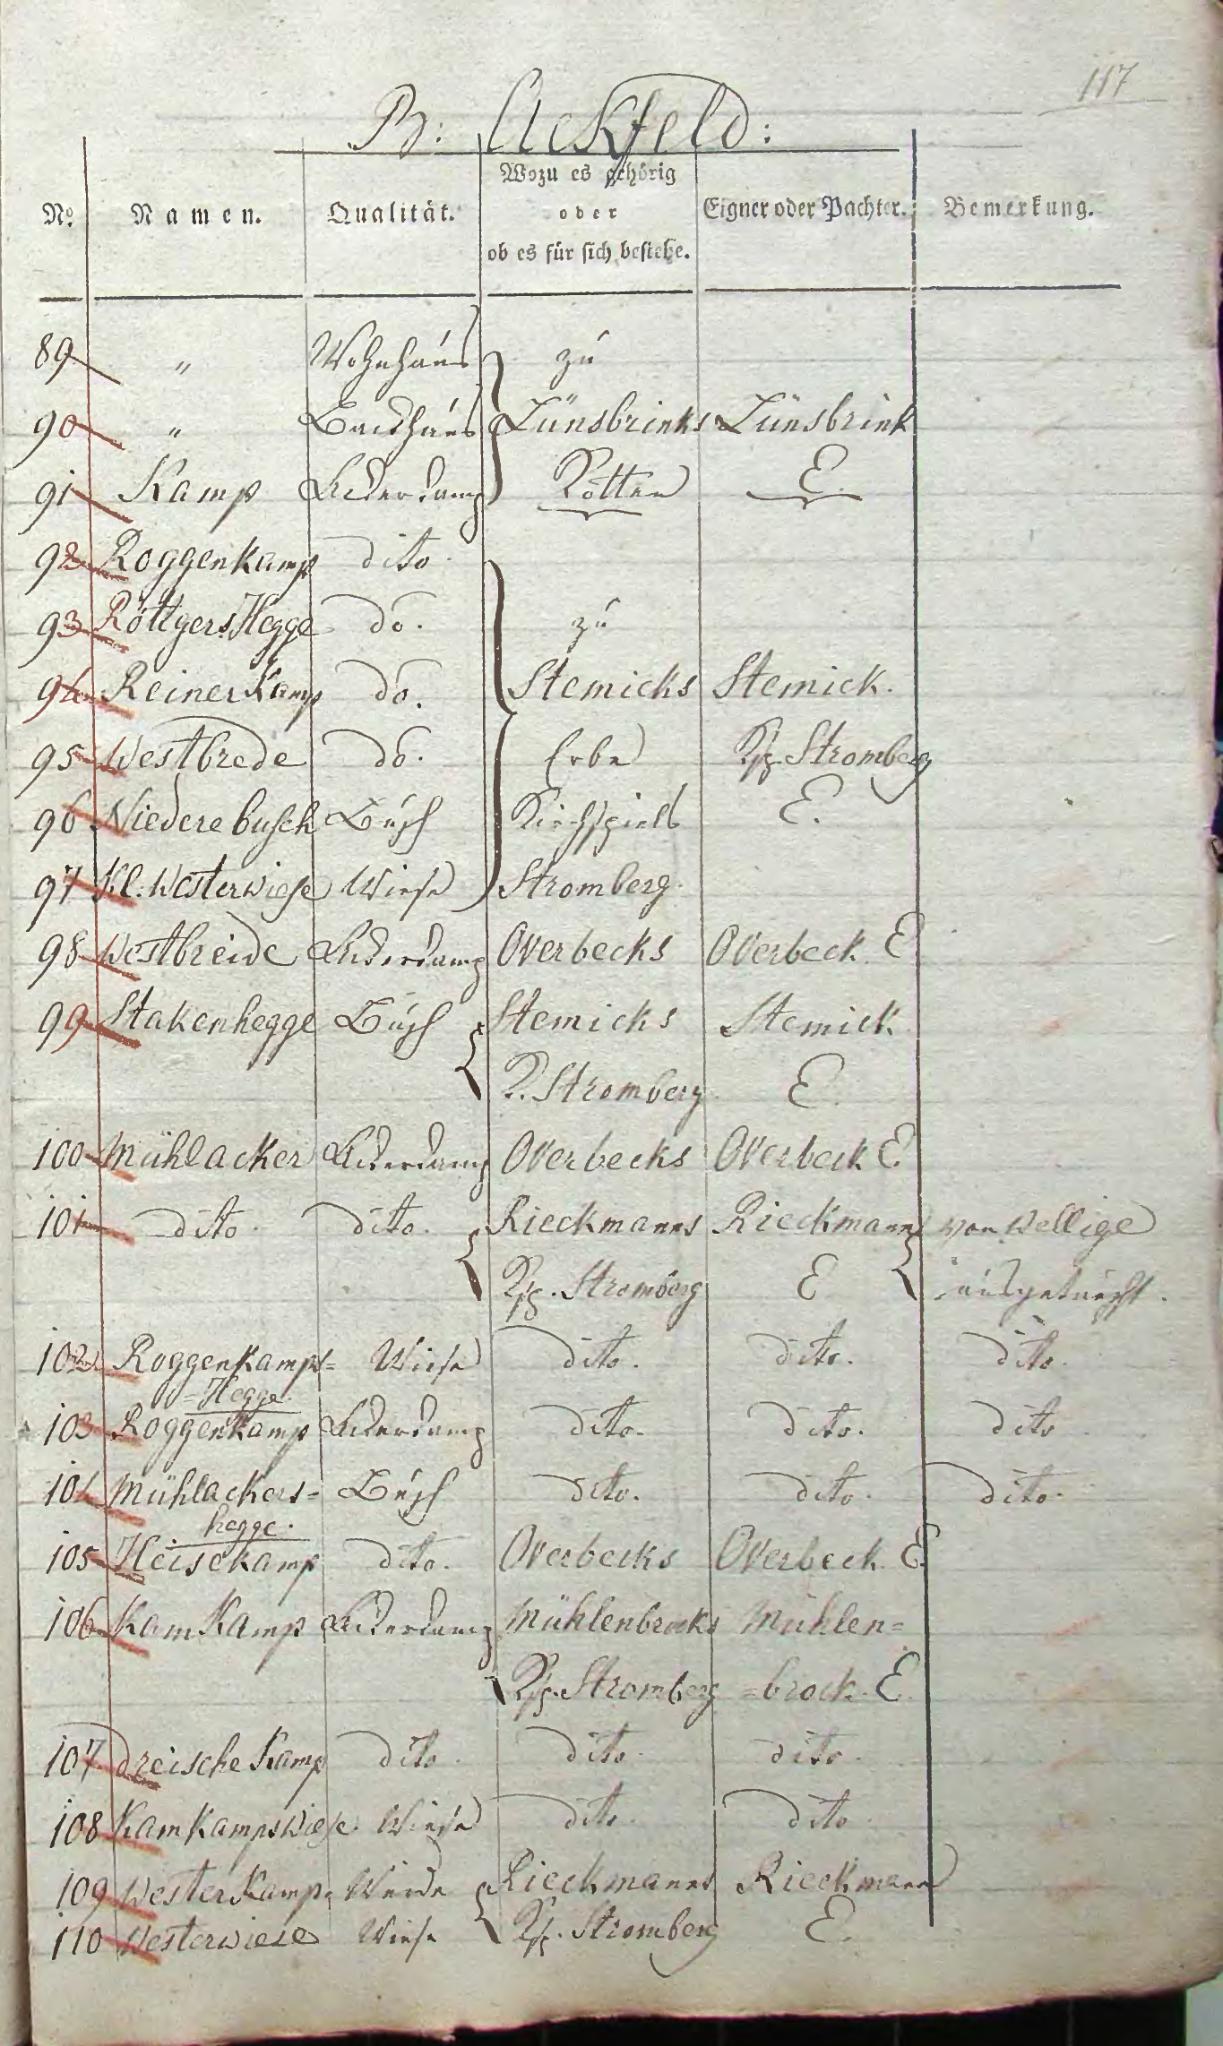 117
B: Ackfeld:
No. Namen. Qualität. Wozu es gehörig oder ob es für sich bestehe. Eigner oder Pachter. Bemerkung.
89 " Wohnhaus zu
90 " Backhaus Lünsbrinks Lünsbrink
91 Kamp Ackerkamp Kotten E.
92 Roggenkamp dito
93 Röttgers Hegge do. zu
94 Reiner Kamp do. Stemicks Stemick.
95 Westbrede do. Erbe Ksp. Stromberg
96 Niederebusch Busch Kirchspiels E.
97 Kl: Westerwiese Wiese Stromberg.
98 Westbreide Ackerkamp Overbecks Overbeck E
99 Stakenhegge Busch Stemicks Stemick
K. Stromberg E.
100 Mühlacker Ackerkamp Overbecks Overbeck E.
101 dito dito. Rieckmanns Rieckmann von Wellige
Ksp. Stromberg E ausgetauscht.
102 Roggenkamps= Wiese dito. dito. dito.
=Hegge.
103 Roggenkamp Ackerkamp dito. dito. dito
104 Mühlackers= Busch dito. dito. dito.
hegge.
105 Heisekamp dito. Overbecks Overbeck. E.
106 Kam Kamp Ackerkamp Mühlenbrocks Mühlen=
Ksp. Stromberg =brock. E.
107 dreische Kamp dito. dito. dito.
108 Kamkampswiese Wiese dito. dito
109 Westerkamp Weide Rieckmanns Rieckmann
110 Westerwiese Wiese Ksp. Stromberg E.